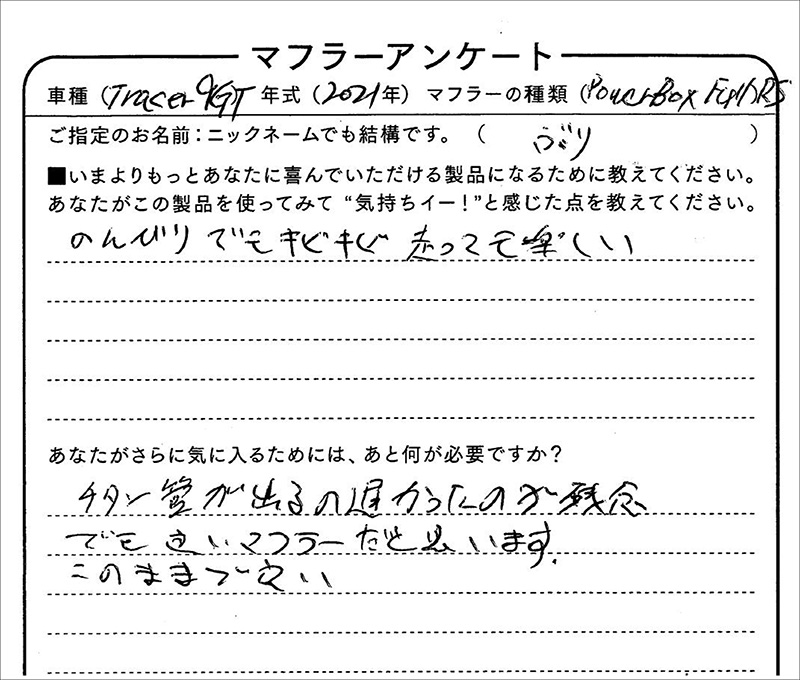 マフラーアンケート
車種（Tracer 9GT 年式（2021年）マフラーの種類（PowerBox Full RS
ご指定のお名前：ニックネームでも結構です。（ ぶり ）
■いまよりもっとあなたに喜んでいただける製品になるために教えてください。
あなたがこの製品を使ってみて“気持ちイー！”と感じた点を教えてください。
のんびりでもキビキビ走っても楽しい
あなたがさらに気に入るためには、あと何が必要ですか？
チタン管が出るの遅かったのが残念
でも良いマフラーだと思います.
このままで良い